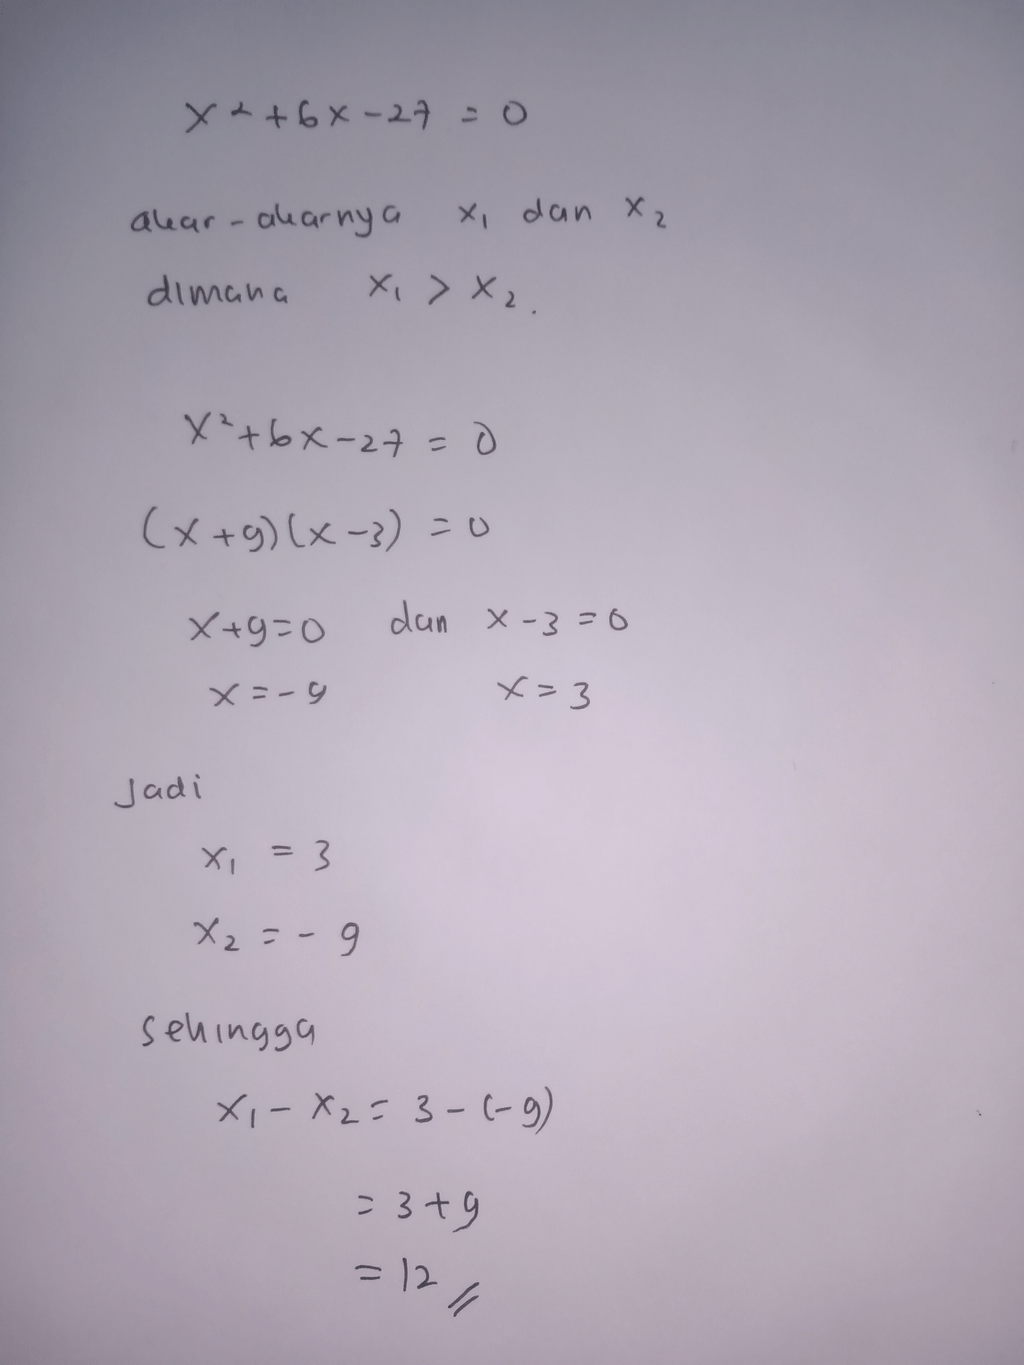 x²+6x-27 = 0
akar-akarnya x₁ dan x₂
dimana x₁ > x₂.
x²+6x-27 = 0
(x+9)(x-3) = 0
x+9=0 dan x-3=0
x=-9 x=3
Jadi
x₁ = 3
x₂ = -9
sehingga
x₁-x₂= 3-(-9)
= 3+9
= 12 //